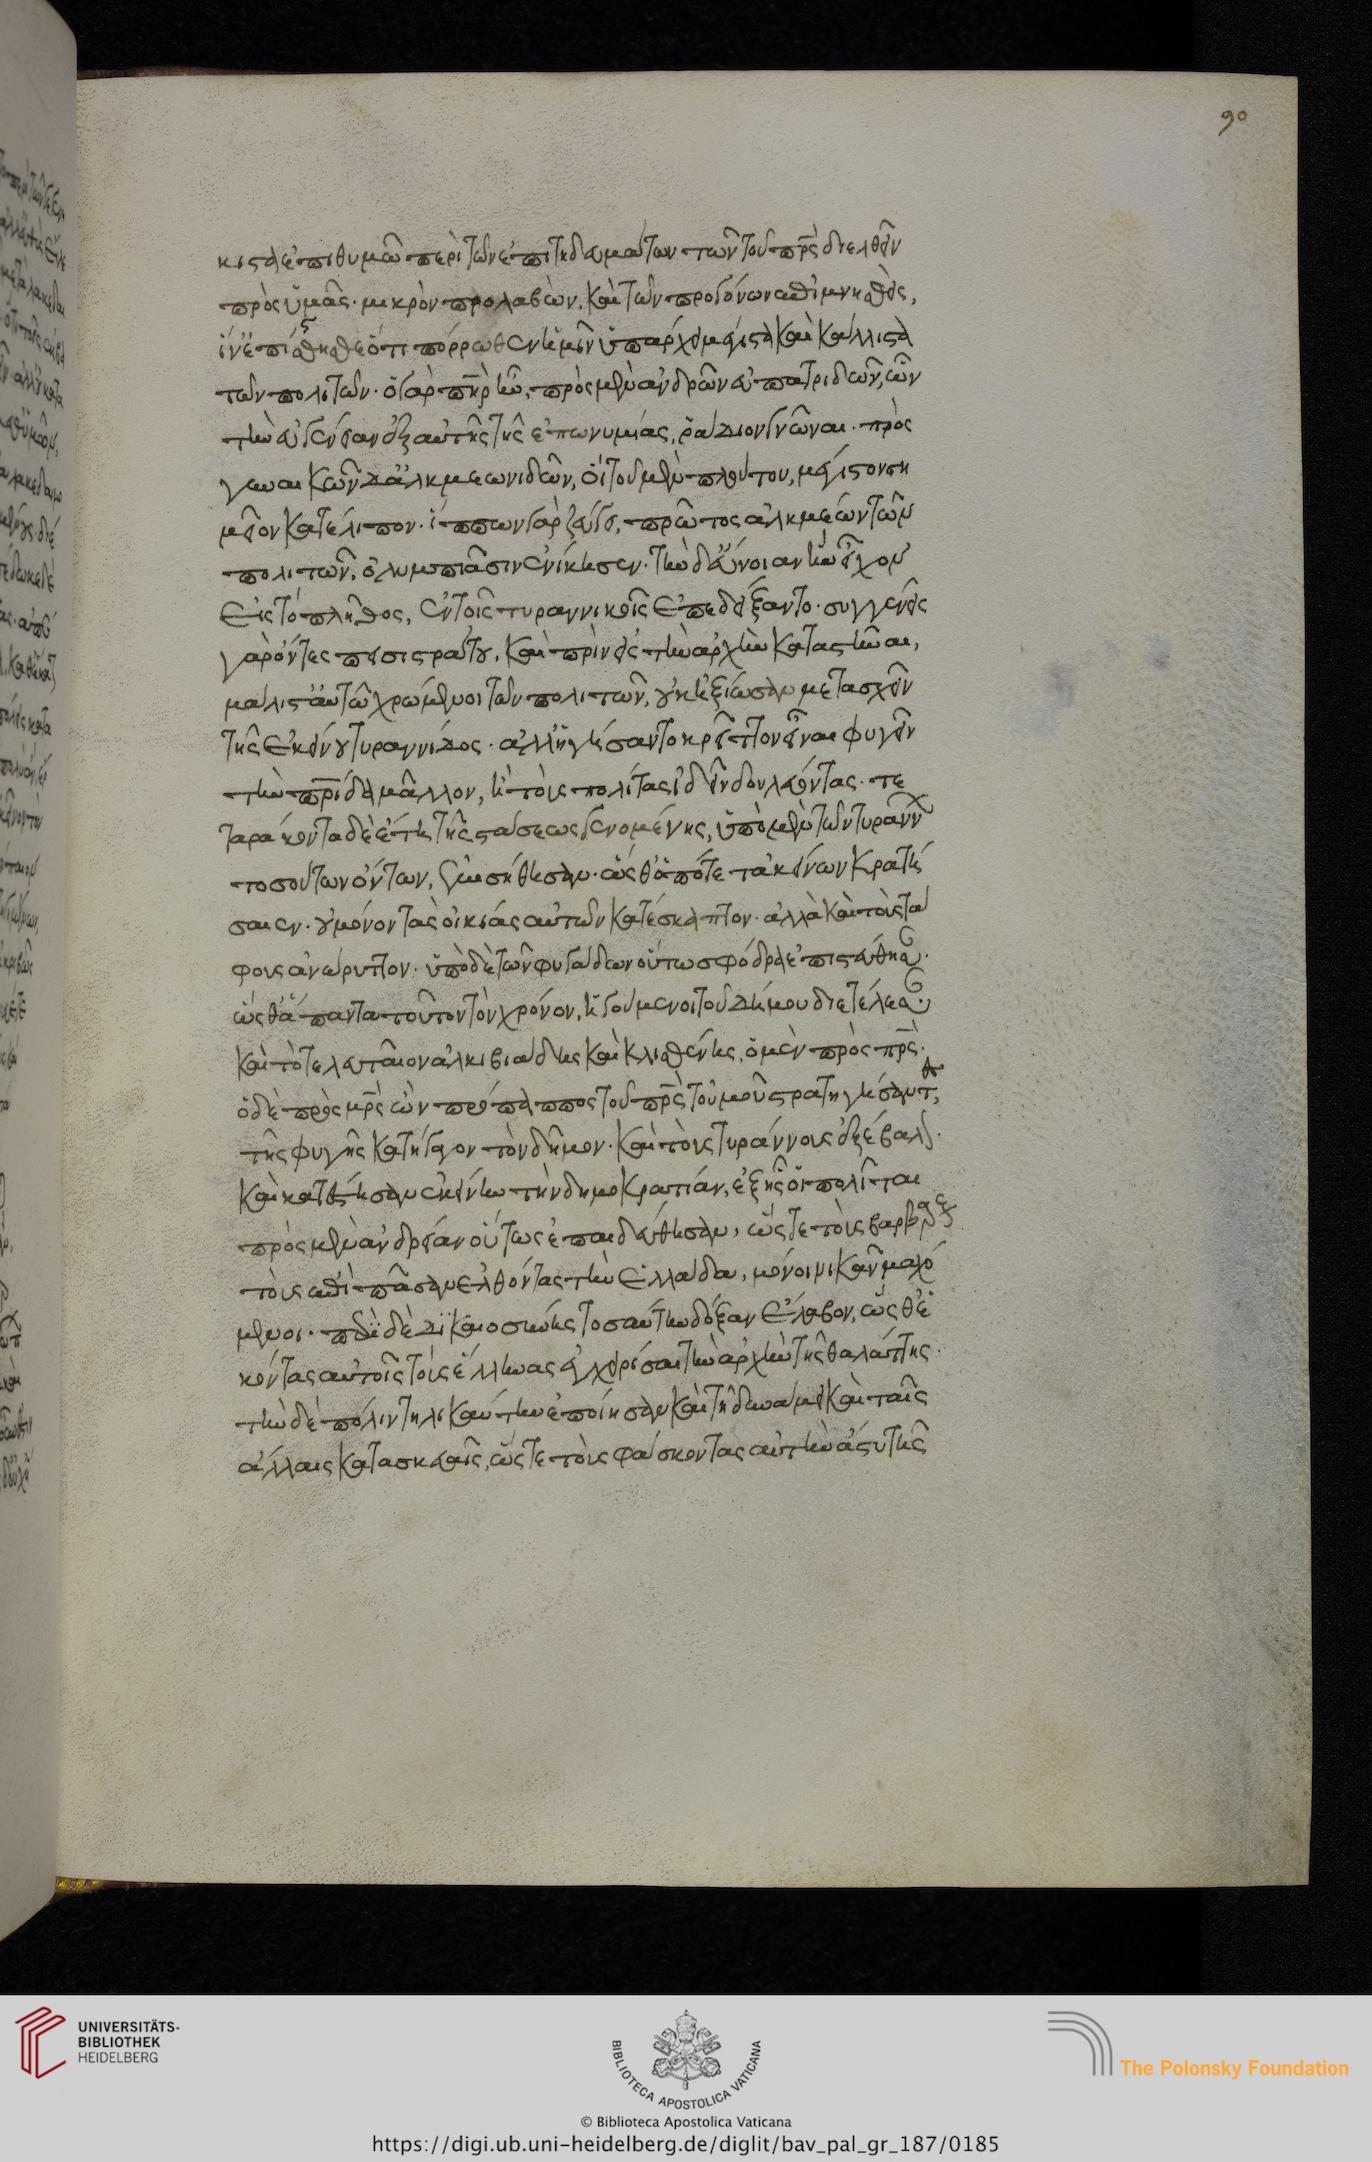 90
κιστα ἐπιθυμῶ περὶ τῶν ἐπιτηδευμάτων τῶν τοῦ πρς διελθεῖν
πρὸς ὑμᾶς· μικρὸν προλαβὼν, καὶ τῶν προγόνων ἐπιμνησθεὶς,
ἵν' ἐπίστησθε ὅτι πόρρωθεν ἡμῖν ὑπάρχει μέγιστα καὶ κάλλιστα
τῶν πολιτῶν· ὁ γὰρ πηρ ἦν, πρὸς μὲν ἀνδρῶν εὐπατριδῶν, ὧν
τὴν εὐγένειαν ἐξ αὐτῆς τῆς ἐπωνυμίας, ῥάδιον γνῶναι· πρὸς
γυναικῶν δ' ἀλκμεωνιδῶν, οἳ τοῦ μὲν πλούτου, μέγιστον ση
μεῖον κατέλιπον· ἵππων γὰρ ζεύγει, πρῶτος ἀλκμεών τῶν
πολιτῶν, ὀλυμπιᾶσιν ἐνίκησεν· τὴν δ' εὔνοιαν ἣν εἶχον
εἰς τὸ πλῆθος, ἐν τοῖς τυραννικοῖς ἐπεδείξαντο· συγγενεῖς
γὰρ ὄντες πεισιστράτου, καὶ πρὶν εἰς τὴν ἀρχὴν καταστῆναι,
μάλιστ' αὐτῶ χρώμενοι τῶν πολιτῶν, οὐκ ἠξίωσαν μετασχεῖν
τῆς ἐκείνου τυραννίδος· ἀλλ' ἡγήσαντο κρεῖττον εἶναι φυγεῖν
τὴν πρίδα μᾶλλον, ἢ τοὺς πολίτας ἰδεῖν δουλεύοντας· τε
ταράκοντα δὲ ἔτη τῆς στάσεως γενομένης, ὑπὸ μὲν τῶν τυράνν
τοσούτων ὄντων, ἐμισήθησαν· ὥσθ' ὁπότε τἀκείνων κρατή
σαιεν· οὐ μόνον τὰς οἰκίας αὐτῶν κατέσκαπτον· ἀλλὰ καὶ τοὺς τά
φους ἀνώρυττον· ὑπὸ δὲ τῶν φυγάδων οὕτω σφόδρα ἐπιστεύθησαν·
ὥσθ' ἅπαντα τοῦτον τὸν χρόνον, ἡγούμενοι τοῦ δήμου διετέλεσαν·
καὶ τὸ τελευταῖον ἀλκιβιάδης καὶ κλισθένης, ὁ μὲν πρὸς πρς·
ὁ δὲ πρὸς μρς ὢν πρόπαππος τοῦ πρς τοὐμοῦ στρατηγήσαντ,
τῆς φυγῆς κατήγαγον τὸν δῆμον· καὶ τοὺς τυράννους ἐξέβαλον·
καὶ κατέστησαν ἐκείνην τὴν δημοκρατίαν, ἐξ ἧς οἱ πολῖται
πρὸς μὲν ἀνδρείαν οὕτως ἐπαιδεύθησαν, ὥστε τοὺς βαρβάρους
τοὺς ἐπὶ πᾶσαν ἐλθόντας τὴν ἑλλάδα, μόνοι νικᾶν μαχό
μενοι· περὶ δὲ δικαιοσύνης τοσαύτην δόξαν ἔλαβον, ὥσθ' ἑ
κόντας αὐτοῖς τοὺς ἕλληνας ἐγχειρίσαι τὴν ἀρχὴν τῆς θαλάττης·
τὴν δὲ πόλιν τηλικαύτην ἐποίησαν καὶ τῆ δυνάμει καὶ ταῖς
ἄλλαις κατασκευαῖς, ὥστε τοὺς φάσκοντας αὐτὴν ἄστυ τῆς
UNIVERSITÄTS-
BIBLIOTHEK
HEIDELBERG
BIBLIOTECA APOSTOLICA VATICANA
The Polonsky Foundation
© Biblioteca Apostolica Vaticana
https://digi.ub.uni-heidelberg.de/diglit/bav_pal_gr_187/0185